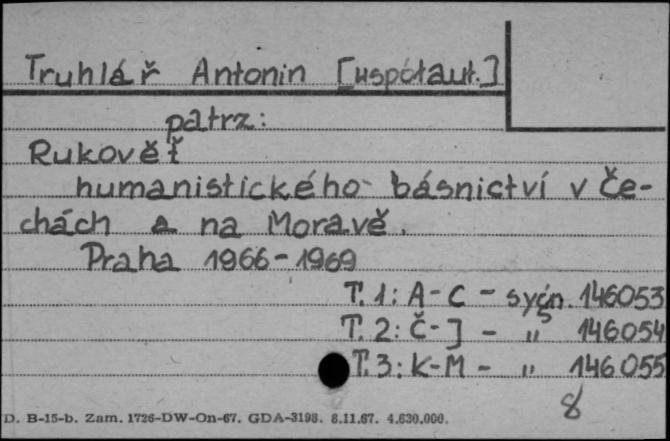 Truhlář Antonin [współaut.]
patrz:
Rukovět
humanistického básnictví v Če-
chách a na Moravě.
Praha 1966-1969
T. 1: A-C - sygn. 146053
T. 2: Č-J - " 146054
T. 3: K-M - " 146055
8
D. B-15-b. Zam. 1726-DW-On-67. GDA-3198. 8.11.67. 4.630.000.